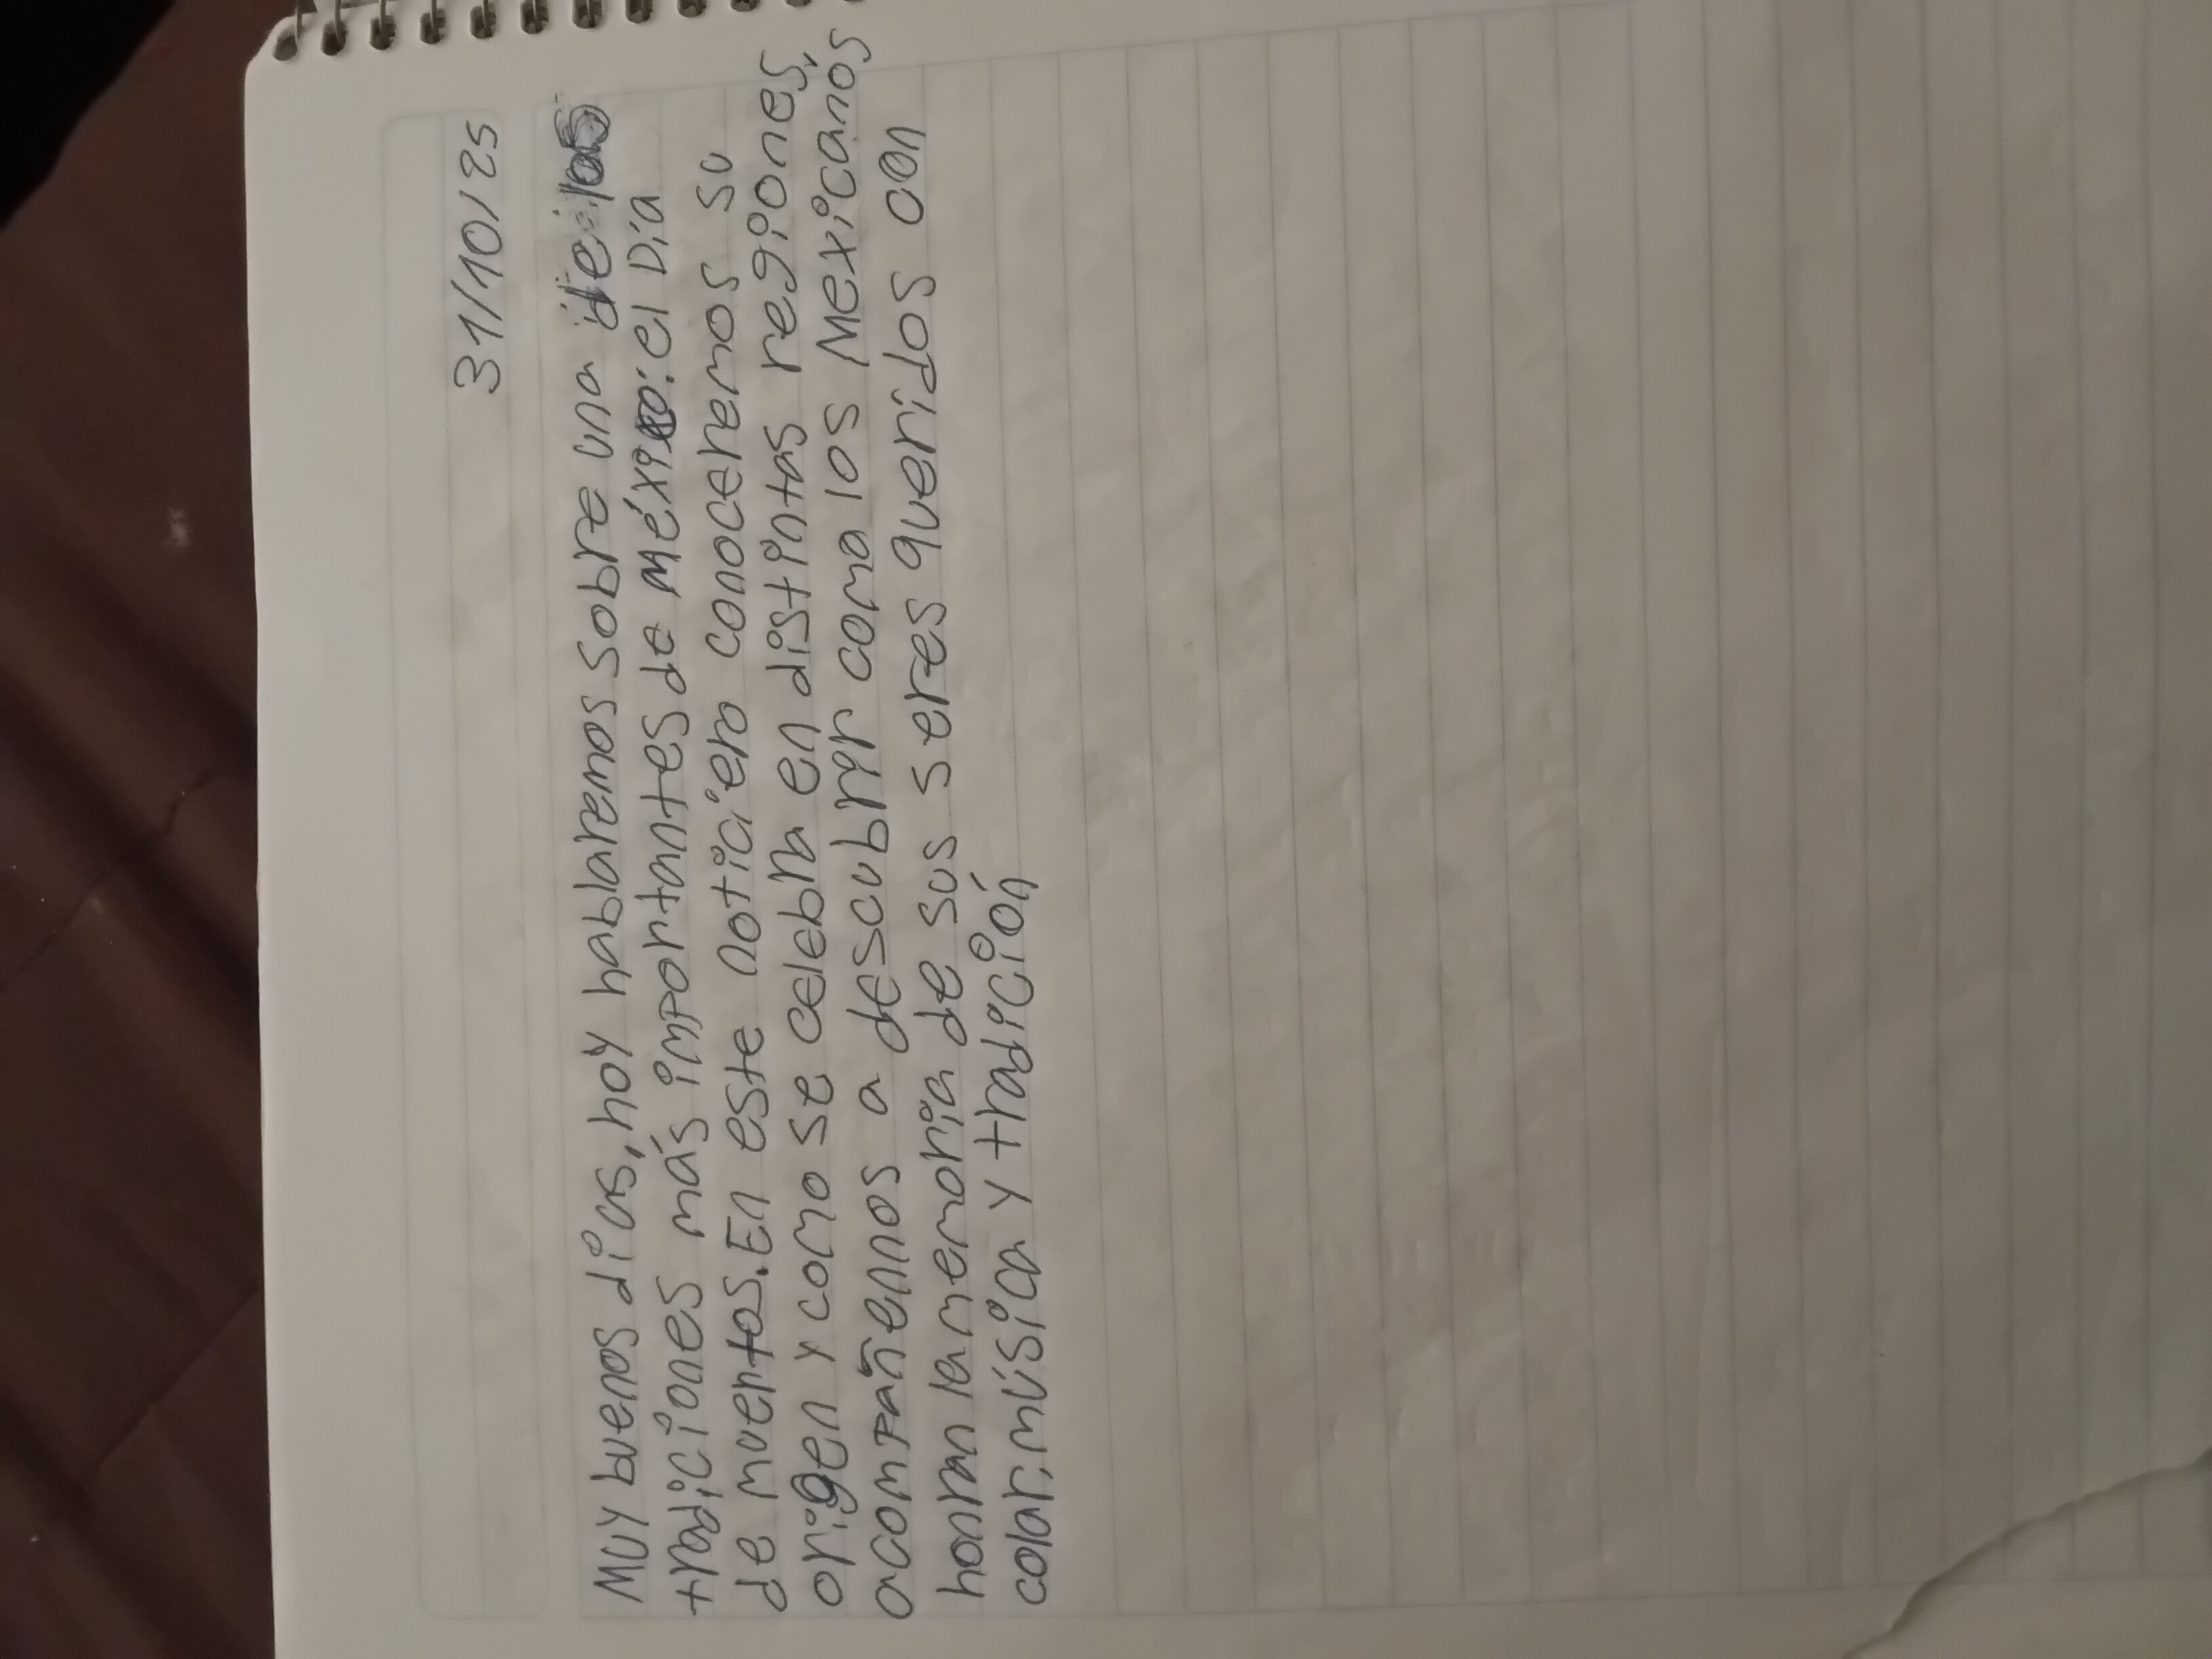 31/10/25
Muy buenos dias, hoy hablaremos sobre una de las
tradiciones más importantes de México: el Día
de muertos. En este noticiero conoceremos su
origen y como se celebra en distintas regiones,
acompañennos a descubrir como los Mexicanos
honran la memoria de sus seres queridos con
color, música y tradición